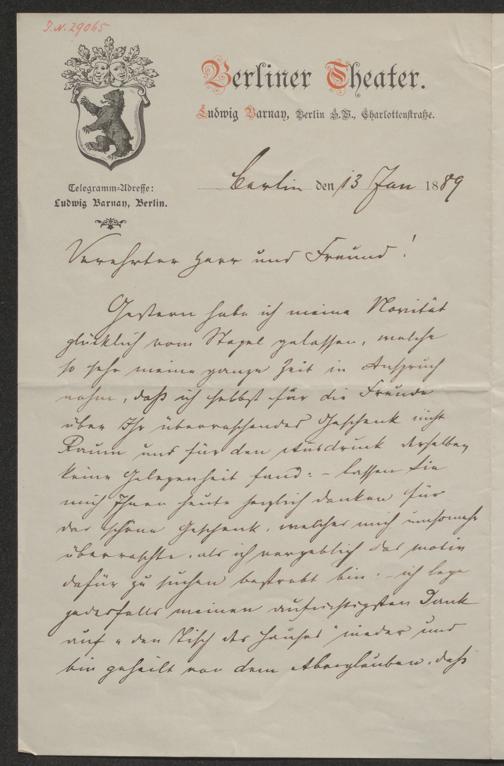 J.N. 29065
Berliner Theater.
Ludwig Barnay, Berlin S.W., Charlottenstraße.
Telegramm-Adresse:
Ludwig Barnay, Berlin.
Berlin den 13 Jan 1889
Verehrter Herr und Freund!
Gestern habe ich meine Novität
glücklich vom Stapel gelassen, welche
so sehr meine ganze Zeit in Anspruch
nahm, daß ich selbst für die Freude
über Ihr überraschendes Geschenk nicht
Raum und für den Ausdruck derselben
keine Gelegenheit fand: – lassen Sie
mich Ihnen heute herzlich danken für
das schöne Geschenk, welches mich umsomehr
überraschte, als ich vergeblich das motiv
dafür zu suchen bestrebt bin. – ich lege
jedesfalls meinen aufrichtigsten Dank
auf „den Tisch des Hauses" nieder und
bin geheilt von dem Aberglauben, daß